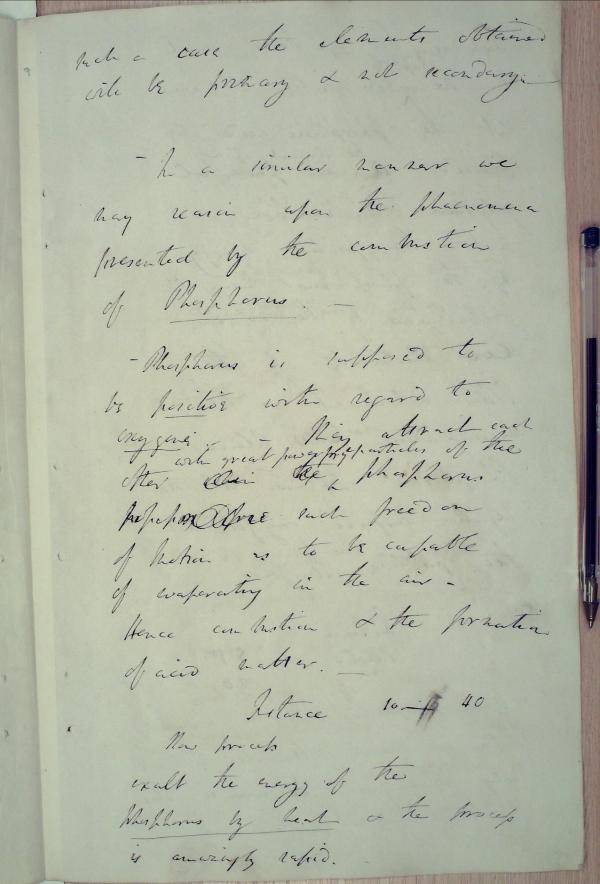 such a case the elements obtained
will be primary & not secondary.
- In a similar manner we
may reason upon the phaenomena
presented by the combustion
of Phosphorus. —
- Phosphorus is supposed to
be positive with regard to
oxygene. - They attract each
with great power particles of the
other the phosphorus
such freedom
of Motion as to be capable
of evaporating in the air -
Hence combustion & the formation
of acid matter. —
Distance 10 40
Now process
exalt the energy of the
phosphorus by heat & the process
is amazingly rapid.